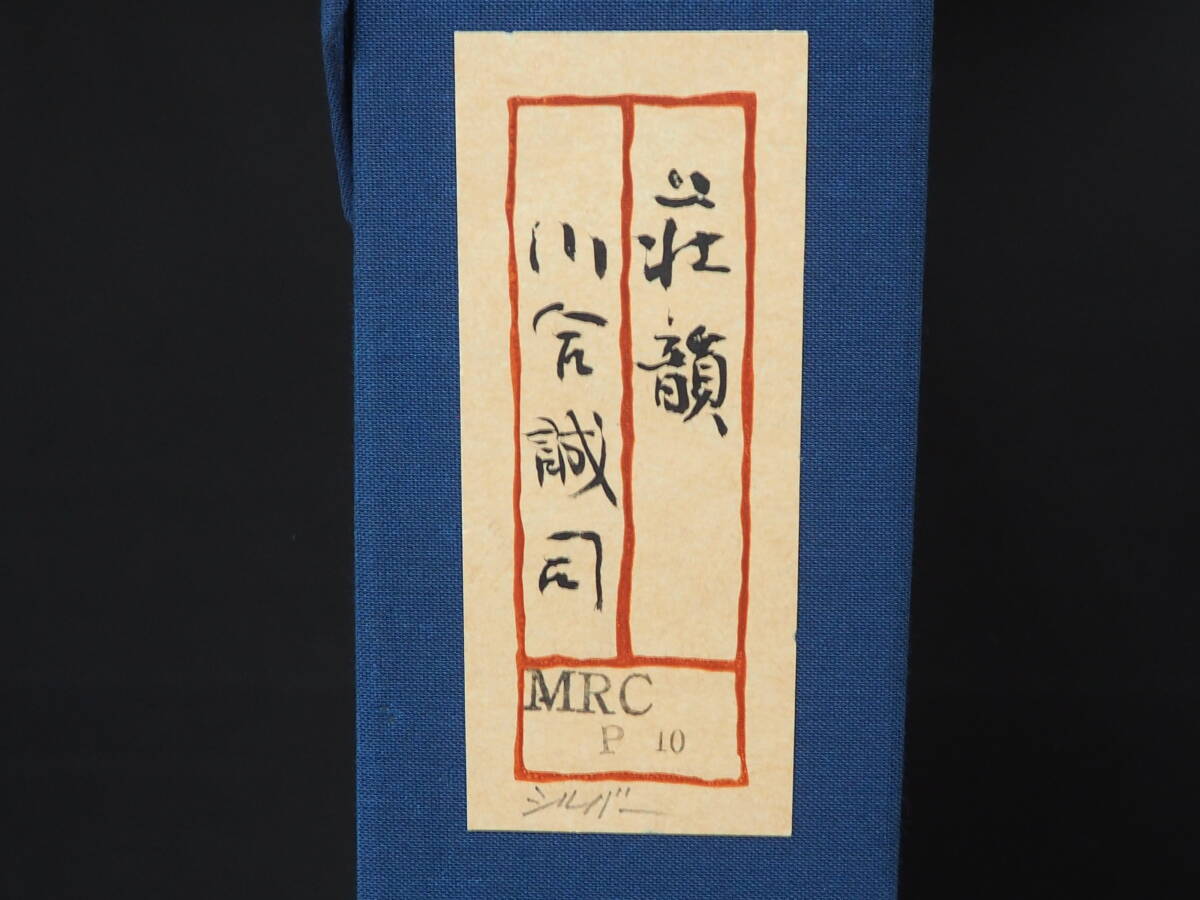 荘韻
川合誠司
MRC
P 10
シルバー